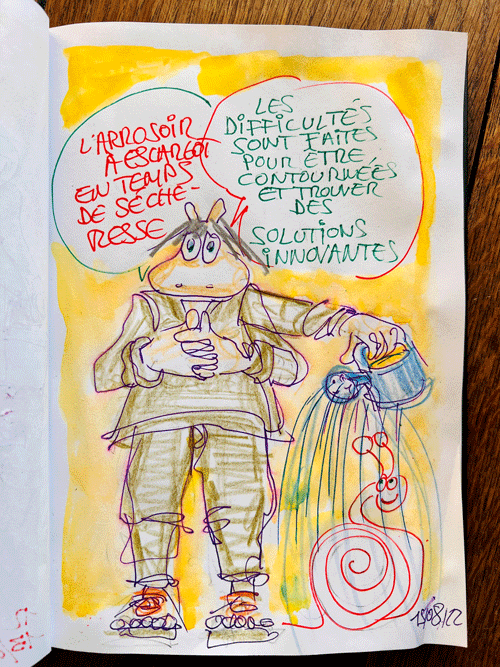 L'ARROSOIR
À ESCARGOT
EN TEMPS
DE SÉCHE-
RESSE
LES
DIFFICULTÉS
SONT FAITES
POUR ÊTRE
CONTOURNÉES
ET TROUVER
DES
SOLUTIONS
INNOVANTES
15/08/22